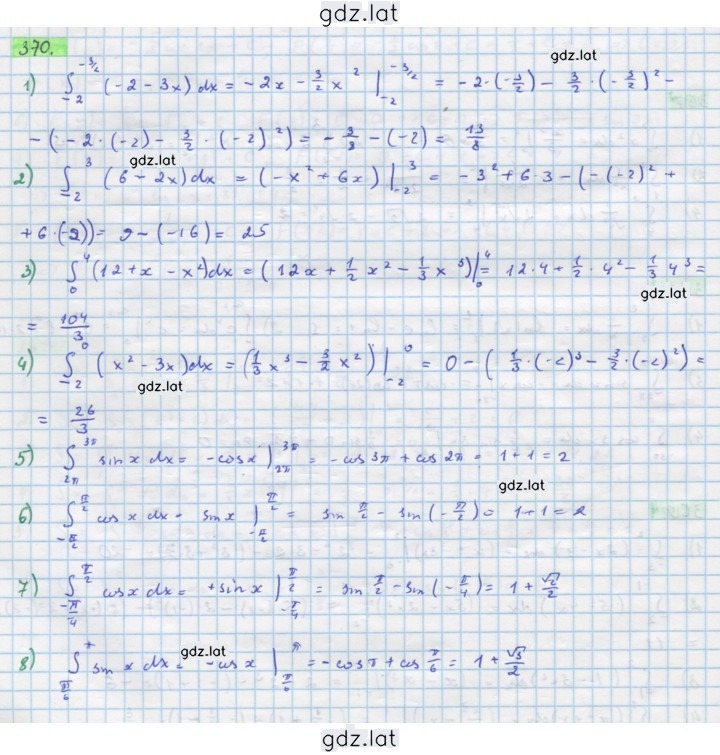 gdz.lat
370.
gdz.lat
1) ∫₋₂^(-3/2) (-2 - 3x) dx = -2x - 3/2 x² |₋₂^(-3/2) = -2·(-3/2) - 3/2·(-3/2)² -
- (-2·(-2) - 3/2·(-2)²) = -3/8 - (-2) = 13/8
gdz.lat
2) ∫₋₂^3 (6 - 2x) dx = (-x² + 6x) |₋₂^3 = -3² + 6·3 - (-(-2)² +
+ 6·(-2)) = 9 - (-16) = 25
3) ∫₀^4 (12 + x - x²) dx = (12x + 1/2 x² - 1/3 x³) |₀^4 = 12·4 + 1/2·4² - 1/3 4³ =
gdz.lat
= 104/3
4) ∫₋₂^0 (x² - 3x) dx = (1/3 x³ - 3/2 x²) |₋₂^0 = 0 - (1/3·(-2)³ - 3/2·(-2)²) =
gdz.lat
= 26/3
5) ∫_(2π)^(3π) sin x dx = -cos x |_(2π)^(3π) = -cos 3π + cos 2π = 1 + 1 = 2
gdz.lat
6) ∫_(-π/2)^(π/2) cos x dx = sin x |_(-π/2)^(π/2) = sin π/2 - sin (-π/2) = 1 + 1 = 2
7) ∫_(-π/4)^(π/2) cos x dx = +sin x |_(-π/4)^(π/2) = sin π/2 - sin (-π/4) = 1 + √2/2
gdz.lat
8) ∫_(π/6)^π sin x dx = -cos x |_(π/6)^π = -cos π + cos π/6 = 1 + √3/2
gdz.lat